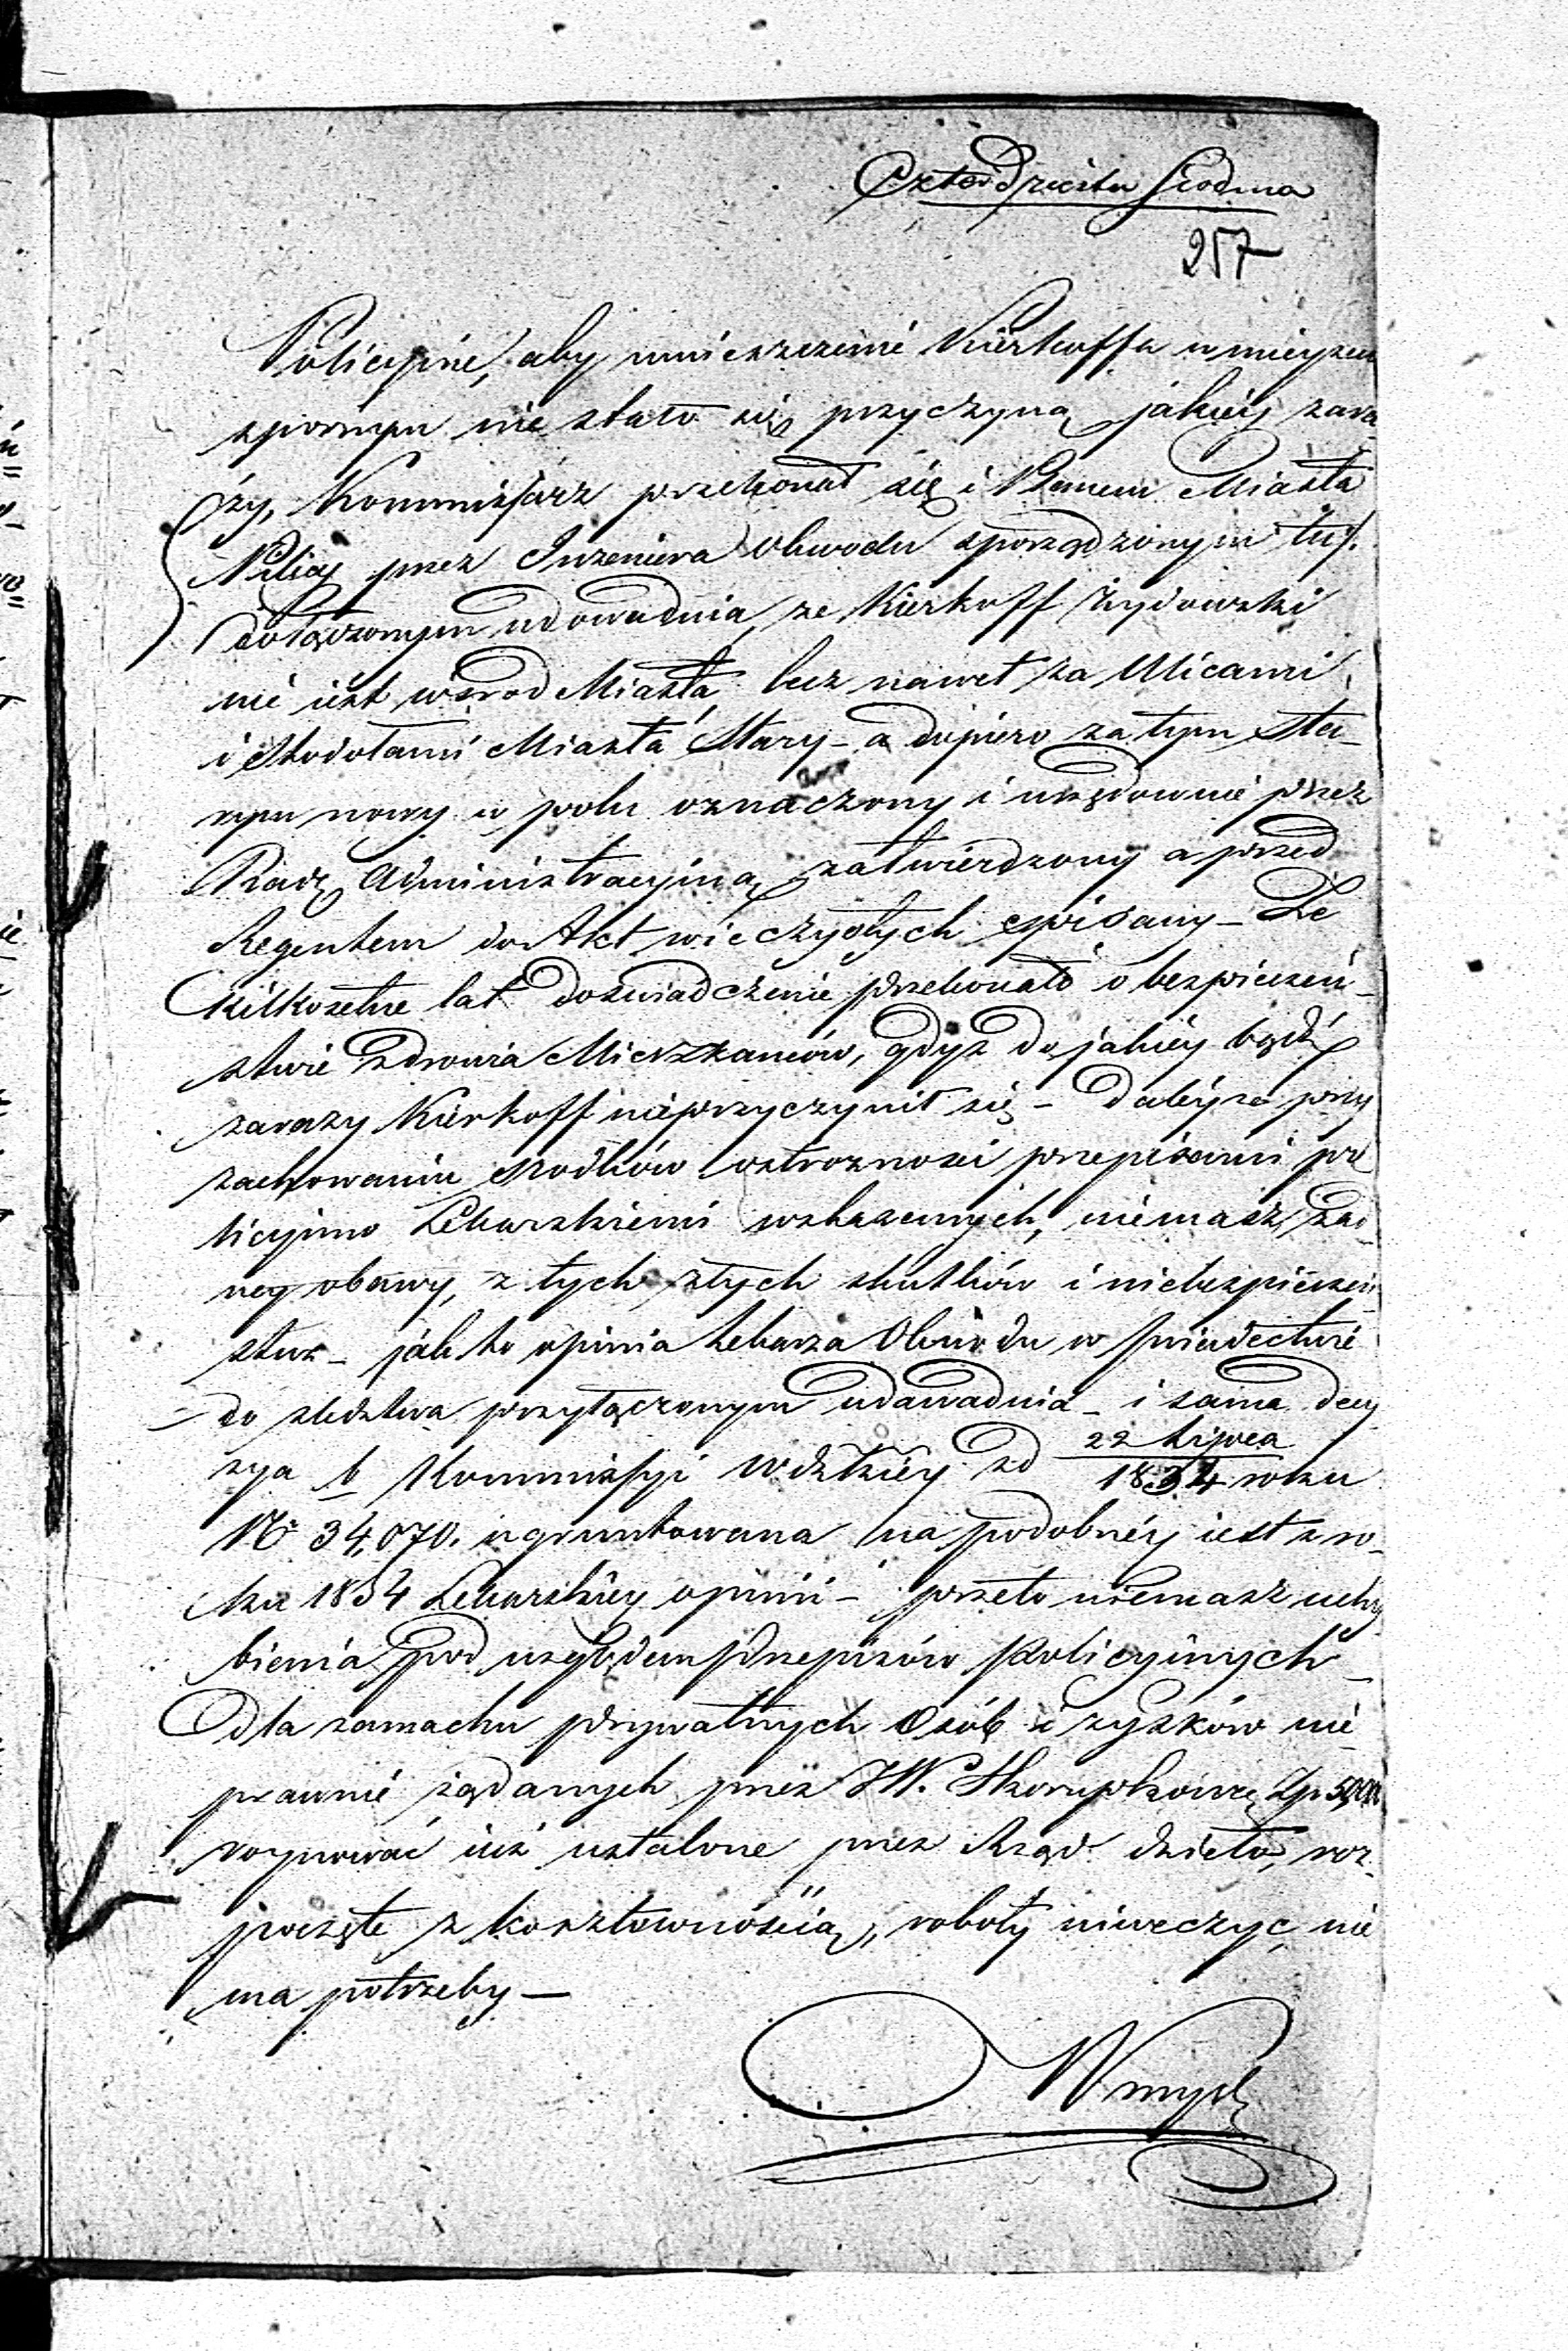 Czterdziesta Siodma
257
Policyine, aby umieszczenie Kierkoffa w mieyscu
spornym nie stało się przyczyną jakiéy zara
zy, Kommissarz przekonał się i Planem Miasta
Pilicy przez Inzeniera Obwodu sporządzonym tu
dołączonym udowadnia, ze Kierkoff Zydowski
nie iest wsrod Miasta, lecz nawet za Ulicami,
i Stodołami Miasta Stary – a dopiero za tym sta–
rym nowy w polu oznaczony i urzędownie przez
Radę Administracyiną zatwierdzony a przed
Regentem do Akt wieczystych spisany – Ze
Kilkosetne lat doswiadczenie przekonało o bezpieczeń–
stwie zdrowia Mieszkanców, gdyz do jakiéy bądź
zarazy Kierkoff nieprzyczynił się – Daléy ze przy
zachowaniu srodków ostroznosci przepisami po
licyino Lekarskiemi wskazanych, niemasz zad–
ney obawy, z tych złych skutków i niebezpieczeń
stwa – jak to opinia Lekarza Obwodu w swiadectwie
do sledztwa przyłączonym udawadnia – i sama decy
zya b Kommissyi Wdztkiéy zd 22 Lipca
1834 roku
Nr 34,070. ugruntowana na podobnéy iest z ro–
ku 1834 Lekarskiéy opinii – przeto niemasz uchy
bienia pod względem Przepisów Policyinych –
Dla zamachu prywatnych Osób i zysków nie
prawnie ządanych przez JW. Skorupkowę Zp
rozrywać iuz ustalone przez Rząd dzieło, roz–
poczęte z kosztownością, roboty niweczyć nie
ma potrzeby –